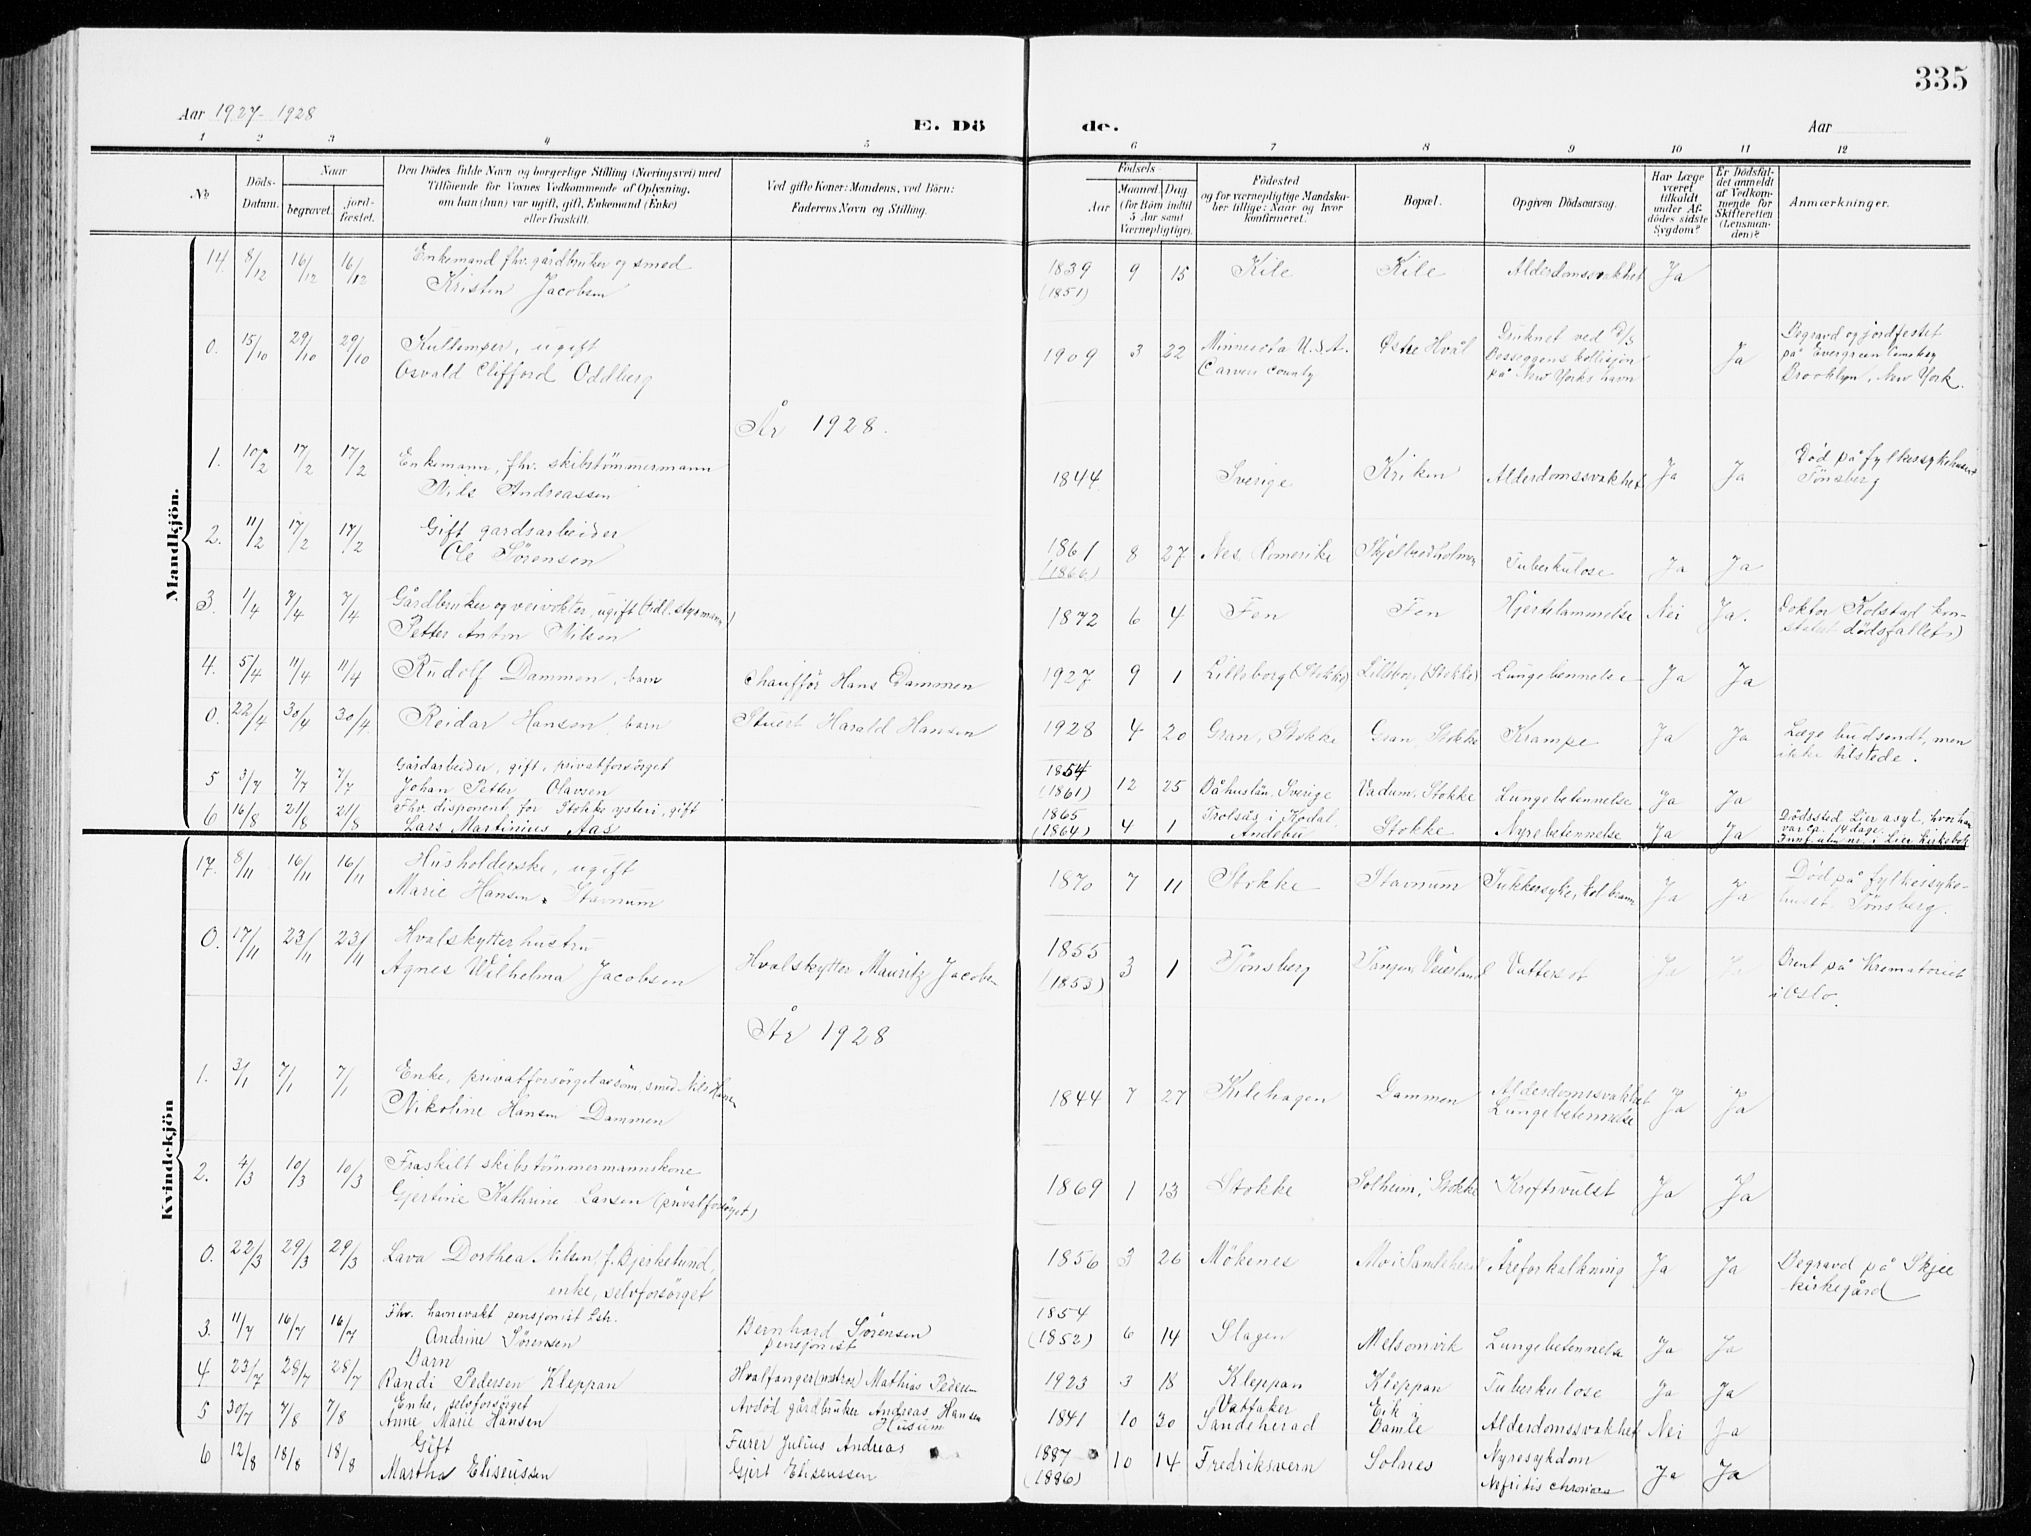 335
Aar 1927-1928
E. Dö
de.
Aar
1 2 3 4 5 6 7 8 9 10 11 12
No.
Döds-Datum.
Naar
begravet.
jord-festet.
Den Dödes fulde Navn og borgerlige Stilling (Næringsvei) med
Tilföiende for Voxnes Vedkommende af Oplysning,
om han (hun) var ugift, gift, Enkemand (Enke)
eller fraskilt.
Ved gifte Koner: Mandens, ved Börn:
Faderens Navn og Stilling.
Födsels-
Aar
Maaned. Dag.
(for Börn indtil
5 Aar samt
Værnepligtige).
Födested
og for værnepligtige Mandska-
ber tillige: Naar og hvor
konfirmeret.
Bopæl.
Opgiven Dödsaarsag.
Har Læge
været
tilkaldt
under Af-
dödes sidste
Sygdom?
Er Dödsfal-
det anmeldt
af Vedkom-
mende for
Skifteretten
(Lensman-
den)?
Anmærkninger.
Mandkjön.
14. 8/12 16/12 16/12 Enkemand fhv. gårdbruker og smed
Kristen Jacobsen
1839 (1851) 9 15 Kile Kile Alderdomssvakhet Ja
0. 15/10 29/10 29/10 Kullemper, ugift
Osvald Clifford Oddberg
1909 3 22 Minnesota U.S.A. Carver County Østre Hvål Druknet ved D/S
Besseggens kollisjon
på New Yorks havn
Ja
Begravd og jordfestet
på Evergreen Cemetery
Brooklyn, New York.
År 1928.
1. 10/2 17/2 17/2 Enkemann, fhv. skibstömmermann
Nils Andreassen
1844. Sverige Kriken Alderdomssvakhet Ja Ja Död på fylkessykehuset
Tönsberg
2. 11/2 17/2 17/2 Gift gardsarbeider
Ole Sörensen
1861 (1866) 8 27 Nes, Romerike Tuberkulose Ja Ja
3. 1/4 7/4 7/4 Gårdbruker og veivokter, ugift (tidl. styrmann)
Petter Anton Nilsen
1872 6 4 Fen Fen Hjertelammelse Nei Ja. Doktor Kolstad kon-
statert dödsfallet)
4. 5/4 11/4 11/4 Rudolf Dammen, barn Chauffør Hans Dammen
1927 9 1 Lillsborg (Stokke) Lillsborg (Stokke) Lungebetennelse Ja Ja
0. 22/4 30/4 30/4 Reidar Hansen, barn Stuert Harald Hansen
1928 4 20 Gran, Stokke Gran, Stokke Krampe Ja Ja Læge budsendt, men
ikke tilstede.
5 3/7 7/7 7/7 Gårdarbeider, gift, privatforsörget
Johan Petter Olavsen
1854 (1861) 12 25 Båhuslän, Sverige Vadum, Stokke Lungebetennelse Ja Ja
6 16/8 21/8 21/8 Fhv. disponent for Stokke ysteri, gift
Lars Martinius Aas
1865 (1864) 4 1 Trolsås i Kodal
Andebu
Stokke Nyrebetennelse Ja Ja Dödssted Lier asyl, hvor han
var ca. 14 dage.
i Lier kirkebok
Kvindekjön
17. 8/11 16/11 16/11 Husholderske, ugift
Marie Hansen Stavnum
1870 7 11 Stokke Stavnum Sukkersyke, kolbrann Ja Ja Död på fylkessyke-
huset, Tönsberg.
0. 17/11 23/11 23/11 Hvalskytterhustru
Agnes Wilhelma Jacobsen
Hvalskytter Mauritz Jacobsen
1855 (1853) 3 1 Tönsberg Tangen, Veierland Vattersot Ja Ja Brent på Krematoriet
i Oslo.
År 1928
1. 3/1 7/1 7/1 Enke, privatforsörget av sön, smed Nils Hansen
Nikoline Hansen Dammen
1844 7 27 Kilehagen Dammen Alderdomssvakhet
Lungebetennelse
Ja Ja
2. 4/3 10/3 10/3 Fraskilt skibstömmermannskone
Gjertine Kathrine Larsen (privatforsörget)
1869 1 13 Stokke Solheim, Stokke Kreftsvulst Ja Ja
0. 22/3 29/3 29/3 Lava Dorthea Nilsen, f. Bjerkelund,
enke, selvforsörget
1856 3 26 Mökenes Åreforkalkning Ja Ja Begravd på Skjee
kirkegård
3. 11/7 16/7 16/7 Fhv. havnevakt pensjonist hstr.
Andrine Sörensen
Bernhard Sörensen
pensjonist
1854 (1852) 6 14 Slagen Melsomvik Lungebetennelse Ja Ja
4 23/7 28/7 28/7 Barn
Randi Pedersen Kleppan
Hvalfanger (matros) Mathias Pedersen
1923 3 18 Kleppan Kleppan Tuberkulose Ja Ja
5 30/7 7/8 7/8 Enke, selvforsörget
Anne Marie Hansen
Avdöd gårdbruker Andreas Hansen
Husum
1841 10 30 Vattaker
Sandeherad
Eik
Bamle
Alderdomssvakhet Nei Ja
6 12/8 18/8 18/8 Gift
Martha Eliseussen
Furer Julius Andreas
Gjert Eliseussen
1887 (1886) 10 14 Fredriksvern Solnes Nyresykdom
Nefritis chronica
Ja Ja